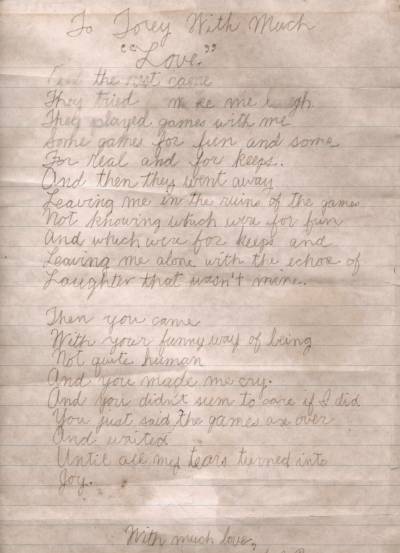 To Torey With Much
"Love."
the rest came
They tried make me laugh
They played games with me
Some games for fun and some
For real and for keeps..
And then they went away
Leaving me in the ruins of the games
Not knowing which were for fun
And which were for keeps and
Leaving me alone with the echoe of
Laughter that wasn't mine.
Then you came
With your funny way of being
Not quite human
And you made me cry.
And you didn't seem to care if I did
You just said the games are over
And waited
Until all my tears turned into
Joy.
With much love,